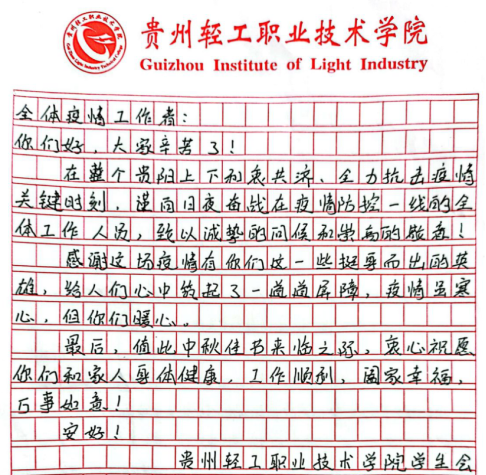 贵州轻工职业技术学院
Guizhou Institute of Light Industry
全体疫情工作者:
你们好,大家辛苦了!
在整个贵阳上下和衷共济、全力抗击疫情
关键时刻,谨向日夜奋战在疫情防控一线的全
体工作人员,致以诚挚的问候和崇高的敬意!
感谢这场疫情有你们这一些挺身而出的英
雄,给人们心中筑起了一道道屏障,疫情虽寒
心,但你们暖心。
最后,值此中秋佳节来临之际,衷心祝愿
你们和家人身体健康,工作顺利,阖家幸福,
万事如意!
安好!
贵州轻工职业技术学院学生会